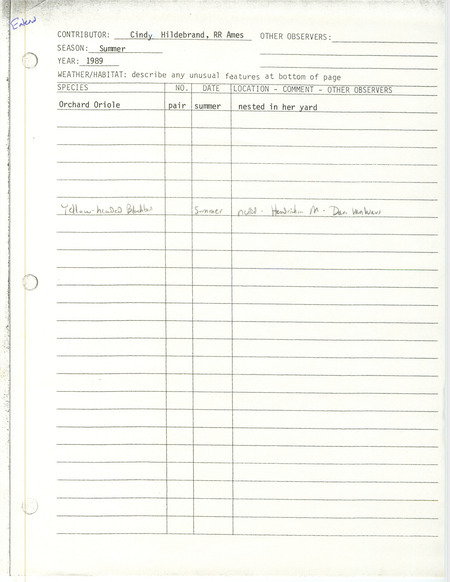 Entered
CONTRIBUTOR: Cindy Hildebrand, RR Ames OTHER OBSERVERS:
SEASON: Summer
YEAR: 1989
WEATHER/HABITAT: describe any unusual features at bottom of page
SPECIES NO. DATE LOCATION - COMMENT - OTHER OBSERVERS
Orchard Oriole pair summer nested in her yard
Yellow-headed Summer - M - Dan